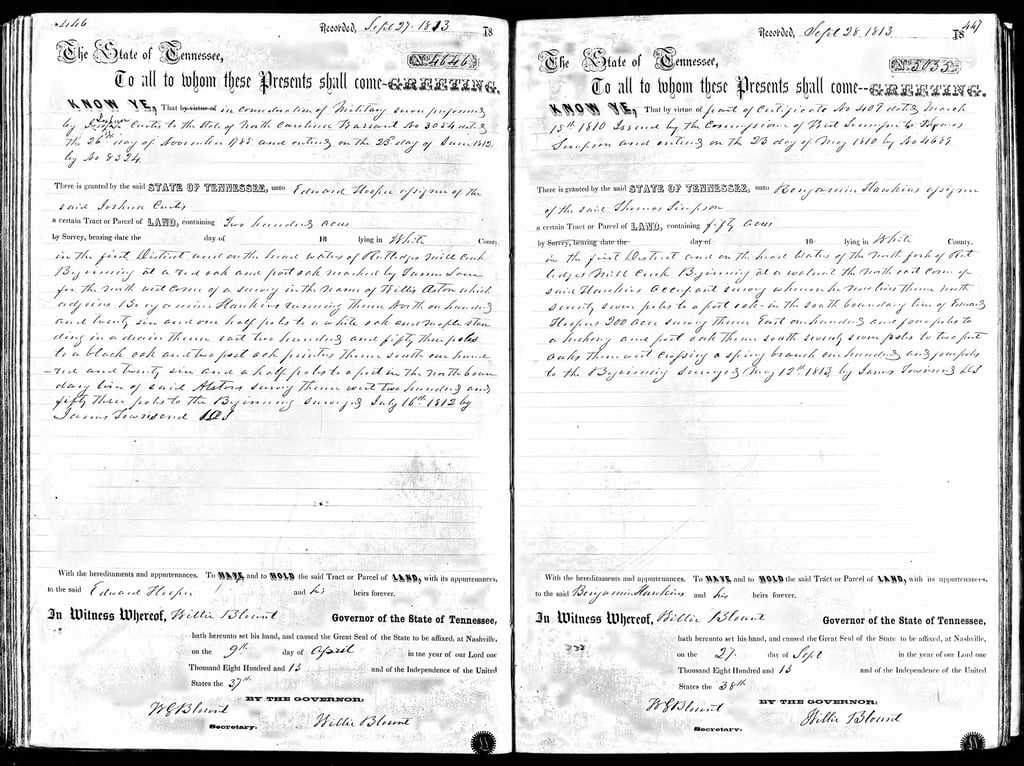 446
Recorded, Sept 27. 1813 18
The State of Tennessee,
No 4646
To all to whom these Presents shall come--GREETING.
KNOW YE, That by virtue of in consideration of Military service performed
by Joshua Curtis to the State of North Carolina Warrant No 3054 dated
the 26th day of November 1785 and entered on the 23d day of June 1812
by No 8324
There is granted by the said STATE OF TENNESSEE, unto Edward Hooper assignee of the
said Joshua Curtis
a certain Tract or Parcel of LAND, containing Two hundred acres
by Survey, bearing date the day of 18 lying in White County.
in the first District and on the head waters of Rutledges mill Creek
Beginning at a red oak and post oak marked by James
for the north west corner of a survey in the name of Willis Aston which
adjoins Benjamin Hawkins running thence North one hundred
and twenty six and one half poles to a white oak and maple stan
ding in a drain thence east two hundred and fifty three poles
to a black oak and two post oak pointers thence south one hund
-red and twenty six and a half poles to a post in the north boun
dary line of said Alstons survey thence west two hundred and
fifty three poles to the Beginning surveyed July 16th 1812 by
James Townsend DS
With the hereditaments and appurtenances. To HAVE and to HOLD the said Tract or Parcel of LAND, with its appurtenances,
to the said Edward Hooper and his heirs forever.
In Witness Whereof, Willie Blount Governor of the State of Tennessee,
hath hereunto set his hand, and caused the Great Seal of the State to be affixed, at Nashville,
on the 9th day of April in the year of our Lord one
Thousand Eight Hundred and 13 and of the Independence of the United
States the 37th
BY THE GOVERNOR:
W G Blount Willie Blount
Secretary.
447
Recorded, Sept 28. 1813 18
The State of Tennessee,
No 5035
To all to whom these Presents shall come--GREETING.
KNOW YE, That by virtue of part of Certificate No 407 dated March
15th 1810 Issued by the Commissioner of West Tennessee to Thomas
Simpson and entered on the 23 day of May 1810 by No 4689
There is granted by the said STATE OF TENNESSEE, unto Benjamin Hawkins assignee
of the said Thomas Simpson
a certain Tract or Parcel of LAND, containing fifty acres
by Survey, bearing date the day of 18 lying in White County.
in the first District and on the head waters of the North fork of Rut
ledges Mill Creek Beginning at a walnut the north east corner of
said Hawkins Occupant survey whereon he now lives thence north
seventy seven poles to a post oak in the south boundary line of Edward
Hoopers 200 acre survey thence East one hundred and four poles to
a hickory and post oak thence south seventy seven poles to two post
oaks thence west crossing a spring branch one hundred and four poles
to the Beginning surveyed May 12th 1813 by James Townsend DS
With the hereditaments and appurtenances. To HAVE and to HOLD the said Tract or Parcel of LAND, with its appurtenances,
to the said Benjamin Hawkins and his heirs forever.
In Witness Whereof, Willie Blount Governor of the State of Tennessee,
hath hereunto set his hand, and caused the Great Seal of the State to be affixed, at Nashville,
on the 27. day of Sept in the year of our Lord one
Thousand Eight Hundred and 13 and of the Independence of the United
States the 38th
BY THE GOVERNOR:
W G Blount Willie Blount
Secretary.